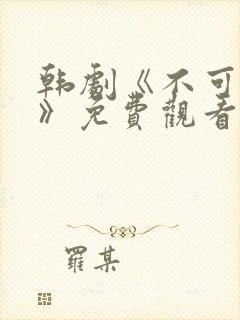 韩劇《不可
》免費觀看
羅某